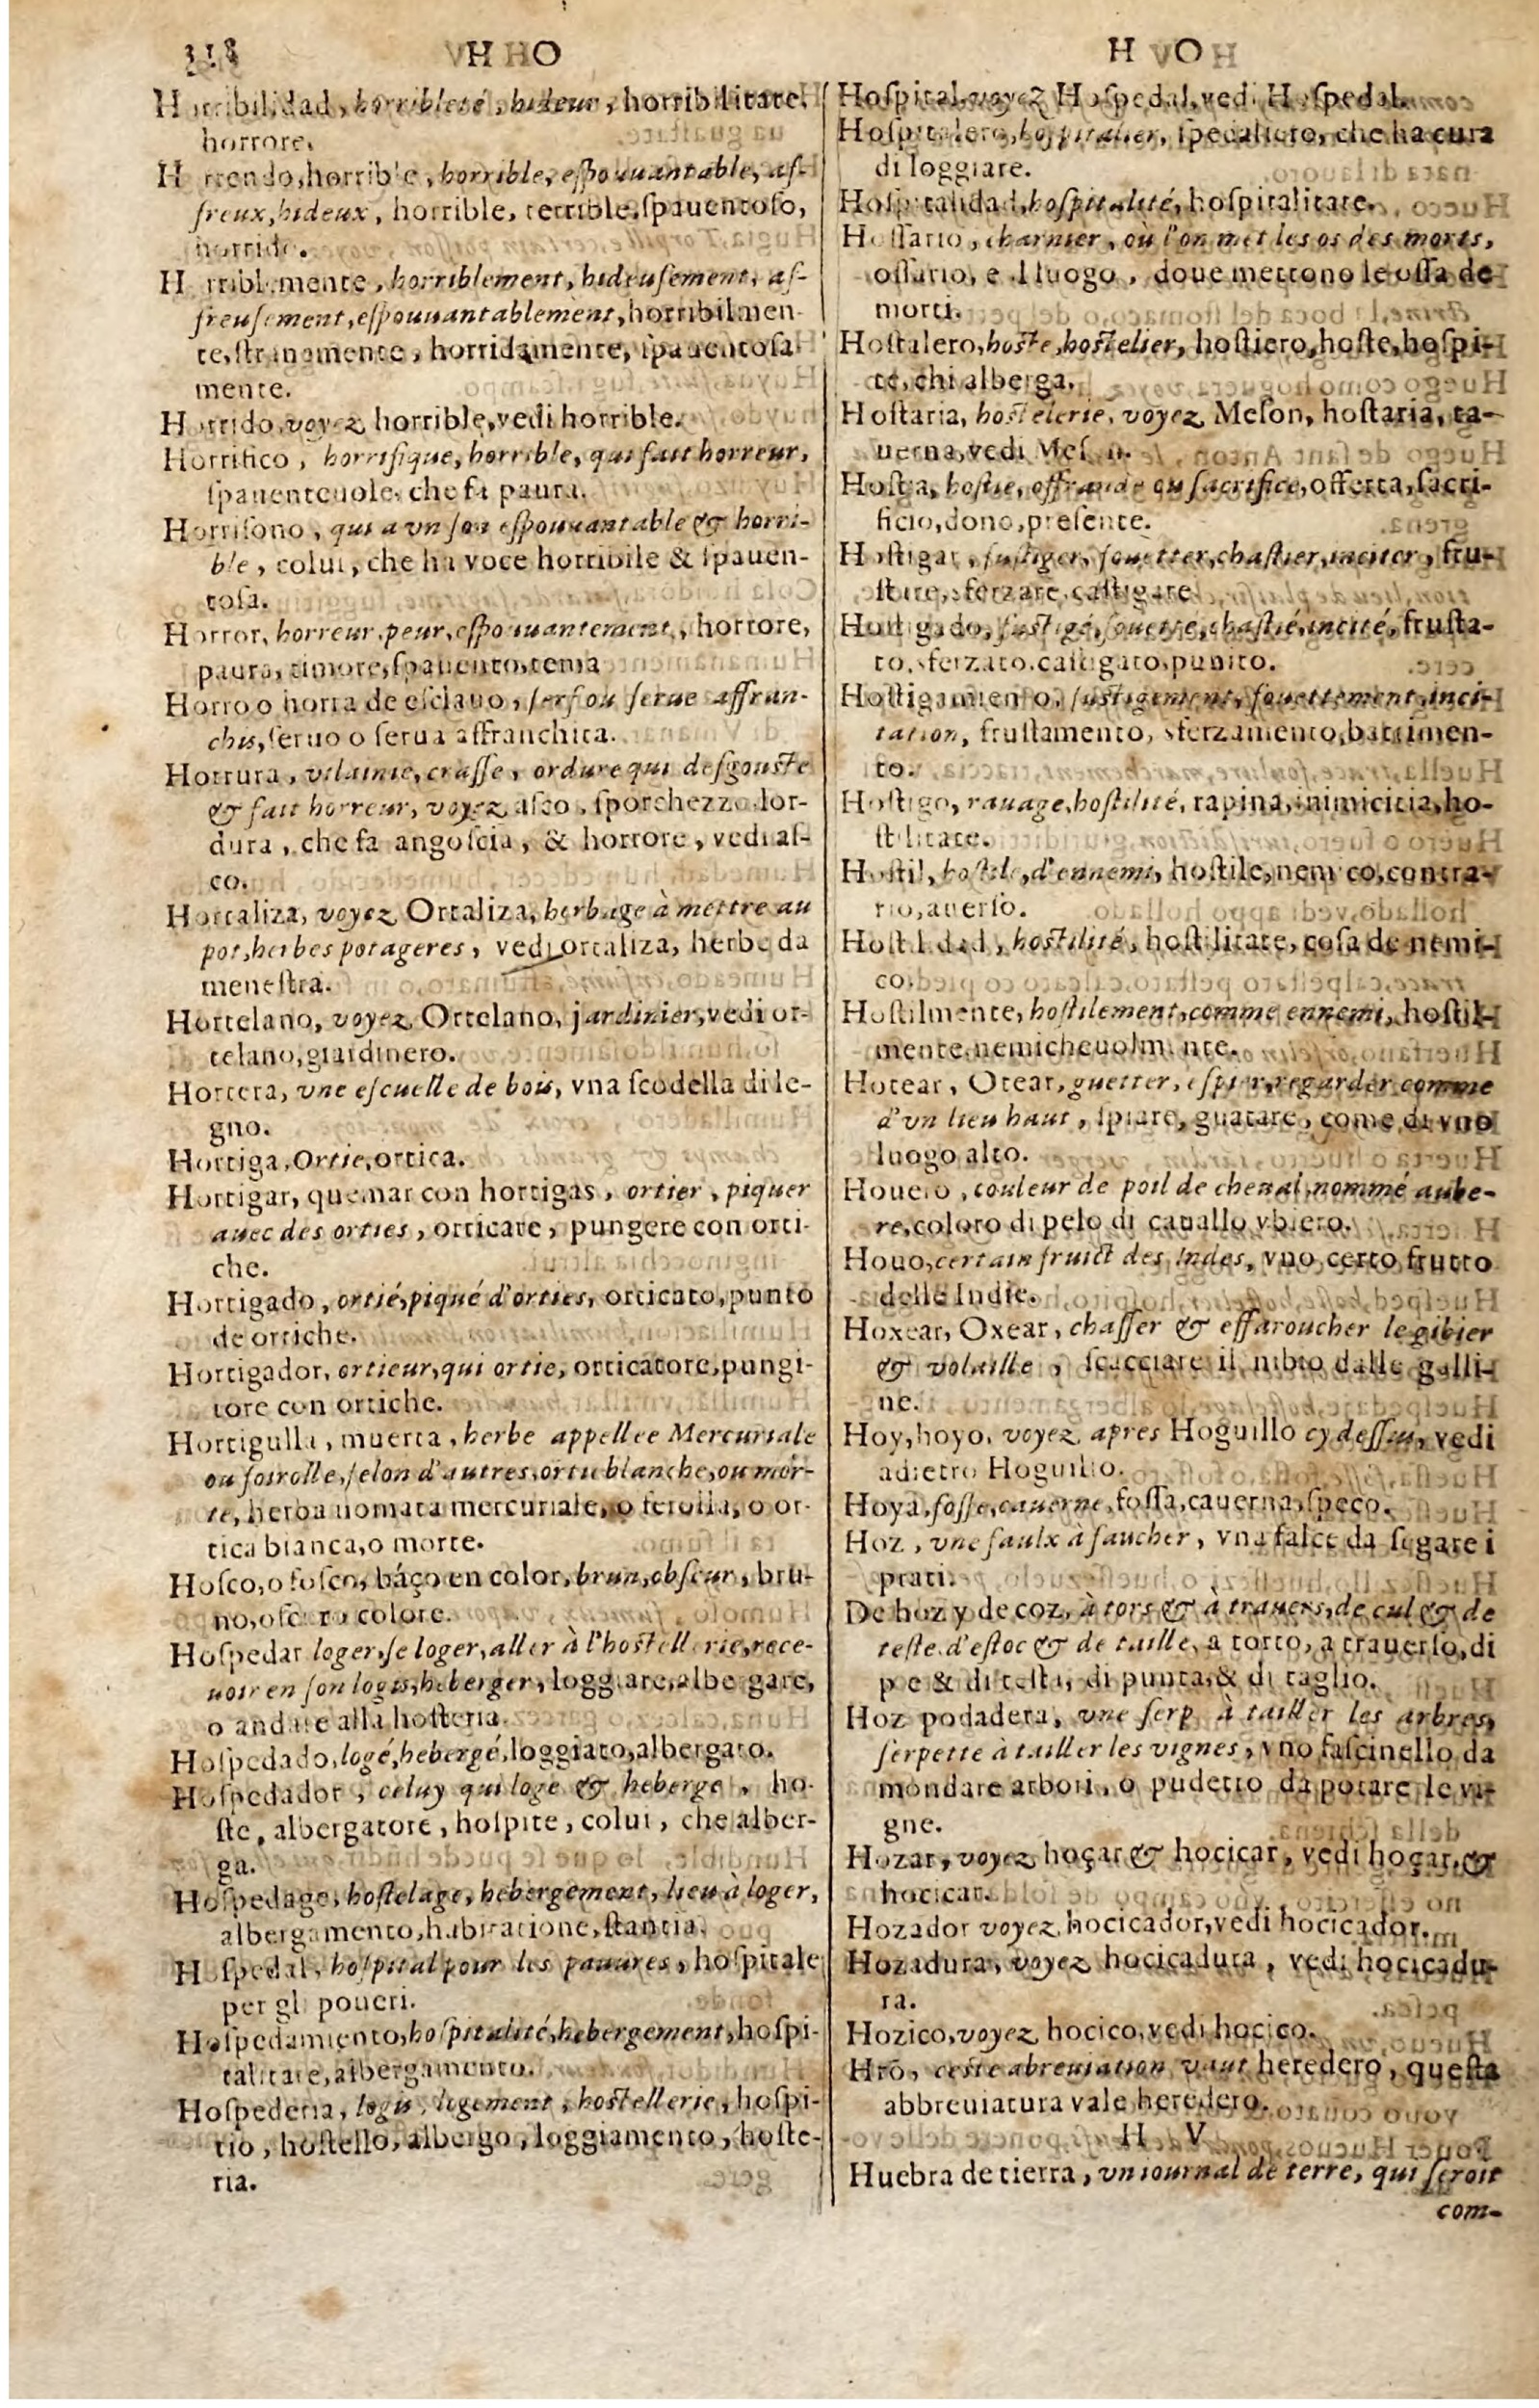 318 H O
H O
Horribilidad, horribleté, hideur, horribilitate,
horrore.
Horrendo, horrible, horrible, espouuantable, af-
freux, hideux, horrible, terrible, spauentoso,
horrido.
Horriblemente, horriblement, hideusement, af-
freusement, espouuantablement, horribilmen-
te, stranamente, horridamente, spauentosa-
mente.
Horrido, voyez horrible, vedi horrible.
Horrifico, horrifique, horrible, qui fait horreur,
spauenteuole, che fa paura.
Horrisono, qui a vn son espouuantable & horri-
ble, colui, che ha voce horribile & spauen-
tosa.
Horror, horreur, peur, espouuantement, horrore,
paura, timore, spauento, tema
Horro o horra de esclauo, serf ou serue affran-
chis, seruo o serua affranchita.
Horrura, vilainie, crasse, ordure qui desgouste
& fait horreur, voyez asco, sporchezza lor-
dura, che fa angoscia, & horrore, vedi as-
co.
Hortaliza, voyez Ortaliza, herbage à mettre au
pot, herbes potageres, vedi ortaliza, herbe da
menestra.
Hortelano, voyez Ortelano, jardinier, vedi or-
telano, giardinero.
Hortera, vne escuelle de bois, vna scodella di le-
gno.
Hortiga, Ortie, ortica.
Hortigar, quemar con hortigas, ortier, piquer
auec des orties, orticare, pungere con orti-
che.
Hortigado, ortié, piqué d'orties, orticato, punto
de ortiche.
Hortigador, ortieur, qui ortie, orticatore, pungi-
tore con ortiche.
Hortigulla, muerta, herbe appellee Mercuriale
ou foirolle, selon d'autres, ortie blanche, ou mor-
te, herba nomata mercuriale, o ferolla, o or-
tica bianca, o morte.
Hosco, o fosco, báço en color, brun, obscur, bru-
no, oscuro colore.
Hospedar loger, se loger, aller à l'hostellerie, rece-
uoir en son logis, heberger, loggiare, albergare,
o andare alla hosteria.
Hospedado, logé, hebergé, loggiato, albergato.
Hospedador, celuy qui loge & heberge, ho-
ste, albergatore, hospite, colui, che alber-
ga.
Hospedage, hostelage, hebergement, lieu à loger,
albergamento, habitatione, stantia.
Hospedal, hospital pour les pauures, hospitale
per gli poueri.
Hospedamiento, hospitalité, hebergement, hospi-
talitate, albergamento.
Hospederia, logis, logement, hostellerie, hospi-
tio, hostello, albergo, loggiamento, hoste-
ria.
Hospital, voyez Hospedal, vedi Hospedal.
Hospitalero, hospitalier, spedaliero, che ha cura
di loggiare.
Hospitalidad, hospitalité, hospitalitate.
Hossario, charnier, où l'on met les os des morts,
ossario, e il luogo, doue mettono le ossa de
morti.
Hostalero, hoste, hostelier, hostiero, hoste, hospi-
te, chi alberga.
Hostaria, hostelerie, voyez Meson, hostaria, ta-
uerna, vedi Meson.
Hostia, hostie, offrande ou sacrifice, offerta, sacri-
ficio, dono, presente.
Hostigar, fustiger, fouëtter, chastier, inciter, fru-
stare, sferzare, castigare
Hostigado, fustigé, fouetté, chastié, incité, frusta-
to, sferzato, castigato, punito.
Hostigamiento, fustigement, fouettement, inci-
tation, frustamento, sferzamento, battimen-
to.
Hostigo, rauage, hostilité, rapina, inimicitia, ho-
stilitate.
Hostil, hostile, d'ennemi, hostile, nemico, contra-
rio, auerso.
Hostilidad, hostilité, hostilitate, cosa de nemi-
co.
Hostilmente, hostilement, comme ennemi, hostil-
mente, nemicheuolmente.
Hotear, Otear, guetter, espier, regarder comme
d'vn lieu haut, spiare, guatare, come di vno
luogo alto.
Houero, couleur de poil de cheual, nommé aube-
re, coloro di pelo di cauallo vbiero.
Houo, certain fruict des Indes, vno certo frutto
delle Indie.
Hoxear, Oxear, chasser & effaroucher le gibier
& volaille, scacciare il nibio dalle galli-
ne.
Hoy, hoyo, voyez apres Hoguillo cy dessus, vedi
adietro Hoguillo.
Hoya, fosse, cauerne, fossa, cauerna, speco.
Hoz, vne faulx à faucher, vna falce da segare i
prati.
De hoz y de coz, à tors & à trauers, de cul & de
teste, d'estoc & de taille, a torto, a trauerso, di
pie & di testa, di punta, & di taglio.
Hoz podadera, vne serp à tailler les arbres,
serpette à tailler les vignes, vno fascinello da
mondare arbori, o pudetto da potare le vi-
gne.
Hozar, voyez hoçar & hocicar, vedi hoçar, &
hocicar.
Hozador voyez hocicador, vedi hocicador.
Hozadura, voyez hocicadura, vedi hocicadu-
ra.
Hozico, voyez hocico, vedi hocico.
Hrõ, ceste abreuiation vaut heredero, questa
abbreuiatura vale heredero.
H V
Huebra de tierra, vn iournal de terre, qui seroit
com-